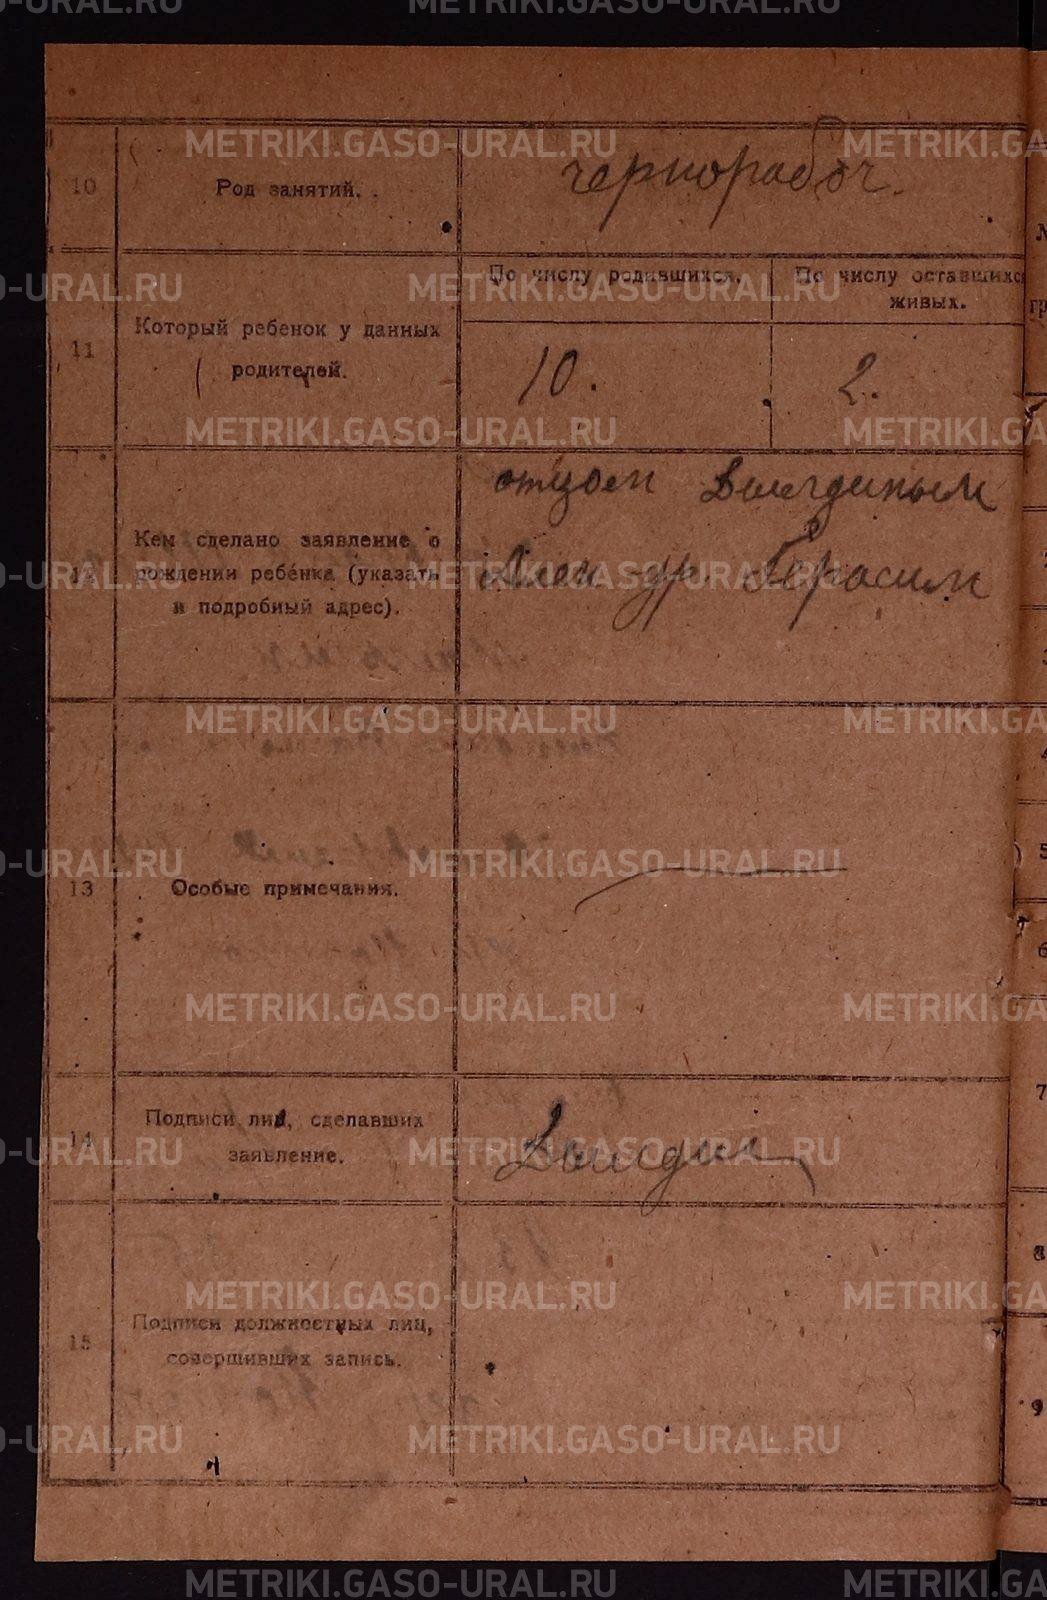 METRIKI.GASO-URAL.RU
10
Род занятий.
чернорабоч.
11
Который ребенок у данных
родителей.
По числу родившихся.
По числу оставшихся
живых.
10.
2.
12
Кем сделано заявление о
рождении ребенка (указать
и подробный адрес).
отцом
Алек-др. Герасим
13
Особые примечания.
14
Подписи лиц, сделавших
заявление.
15
Подписи должностных лиц,
совершивших запись.
5
6
7
8
9